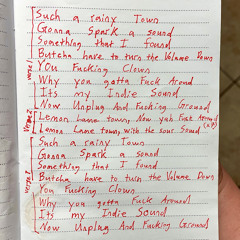 Such a rainy Town
Gonna Spark a sound
Something that I found
Butcha have to turn the Volume Down
You Fucking Clown
Why you gotta Fuck Around
It's my Indie Sound
Now Unplug And Fucking Ground
Lemon Lane town, Now yah Fuck Around (x2)
Lemon Lane town, with the sour Sound
Such a rainy Town
Gonna Spark a sound
Something that I found
Butcha have to turn the Volume Down
You Fucking Clown
Why you gotta Fuck Around
It's my Indie Sound
Now Unplug And Fucking Ground